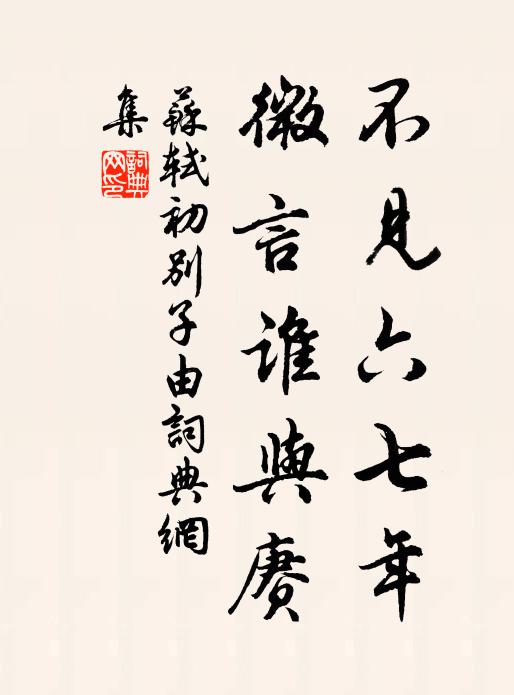 不見六七年
微言誰與賡
蘇軾初別子由詞典網
集
詞典
网印